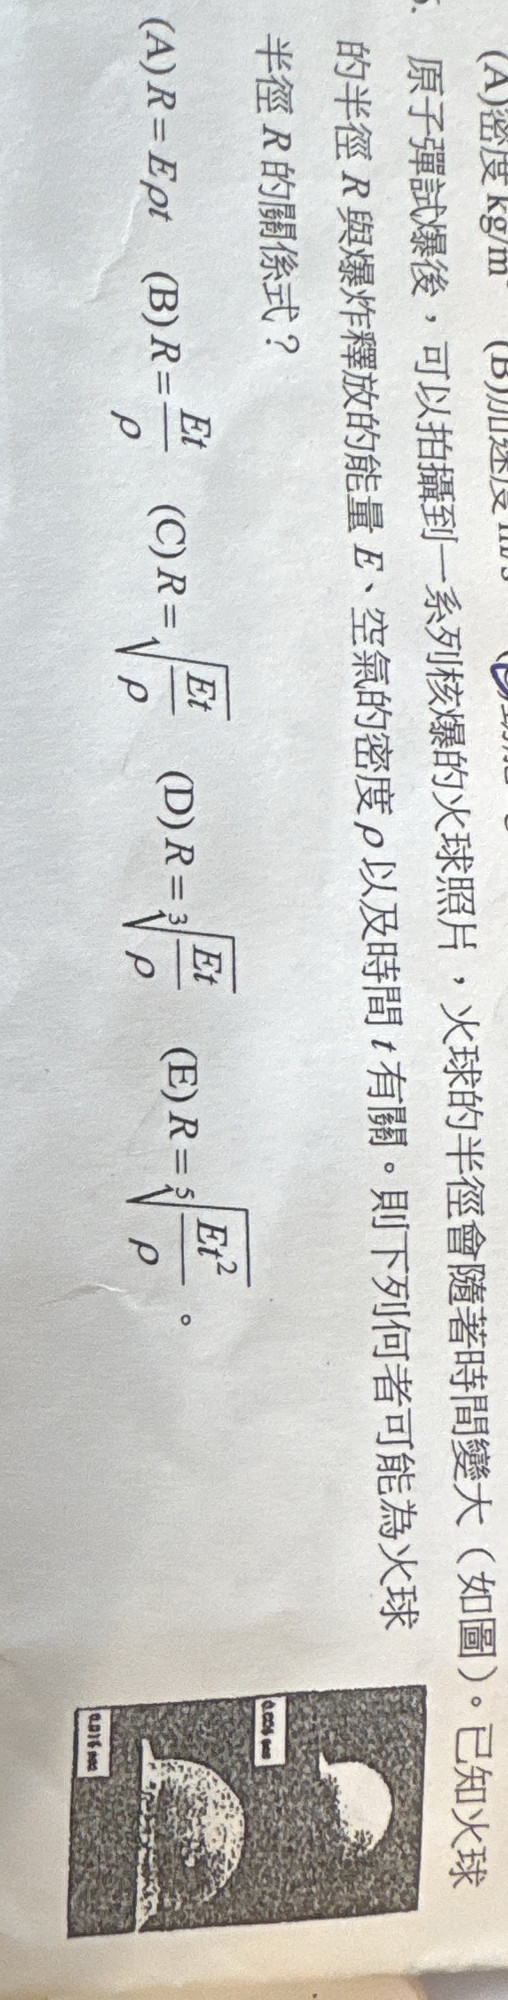 (A)密度 kg/m (B)加速度 m/s
原子彈試爆後，可以拍攝到一系列核爆的火球照片，火球的半徑會隨著時間變大（如圖）。已知火球
的半徑 R 與爆炸釋放的能量 E、空氣的密度 ρ 以及時間 t 有關。則下列何者可能為火球
半徑 R 的關係式？
(A) R = Eρt (B) R = Et/ρ (C) R = √(Et/ρ) (D) R = ³√(Et/ρ) (E) R = ⁵√(Et²/ρ)。
0.006 sec
0.016 sec